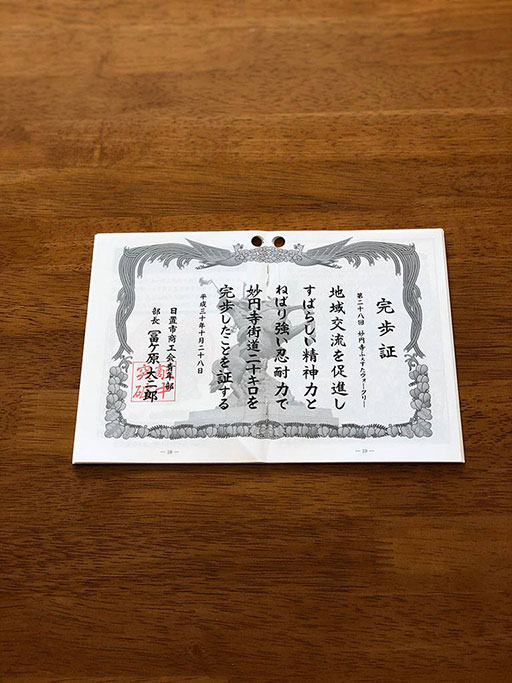 完歩証
第二十八回 妙円寺ふぇすたウォークリー
地域交流を促進し
すばらしい精神力と
ねばり強い忍耐力で
妙円寺街道二十キロを
完歩したことを証する
平成三十年十月二十八日
日置市商工会青年部
部長 冨ケ原 大二郎
― 18 ―
― 19 ―